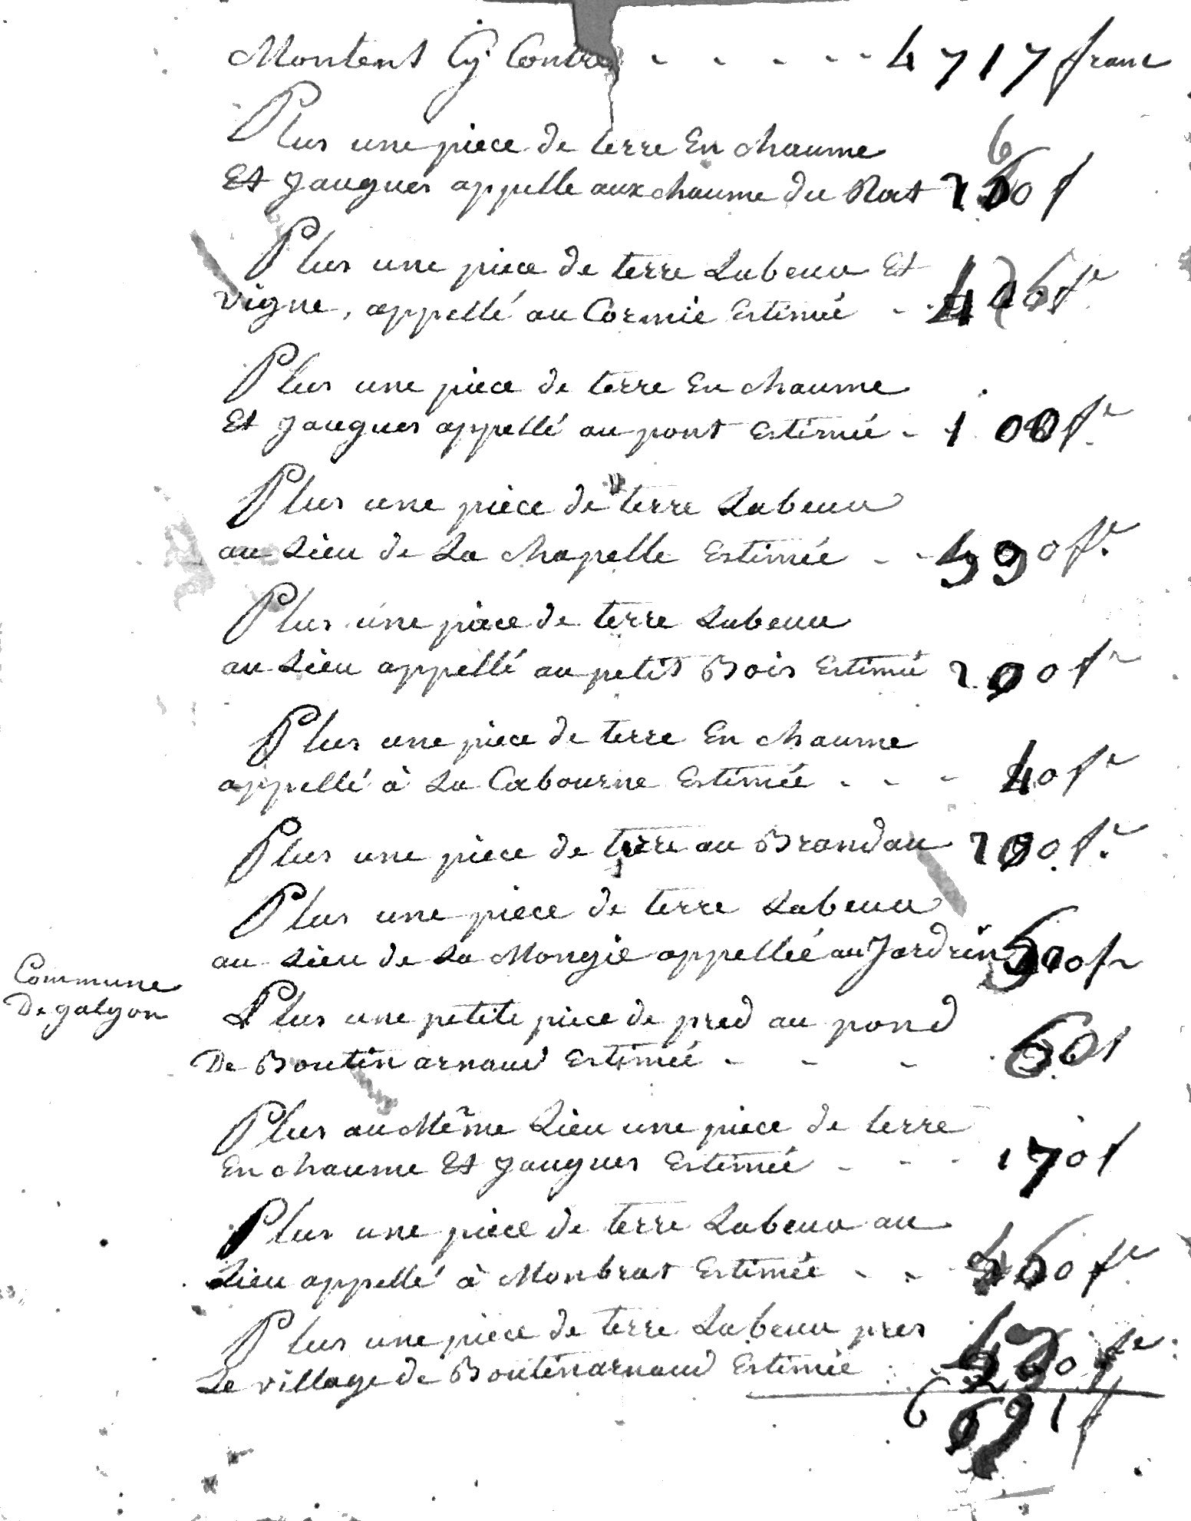 Montent Cy Contre - - - - - 4717 franc
Plus une piece de terre En chaume
Et jaugues appelle aux chaume du Rat
Plus une piece de terre Labeur Et
vigne, appellé au Cormié Estimée - -
Plus une piece de terre En chaume
Et jaugues appellé au pont Estimée - - 100 fr
Plus une piece de terre Labeur
au Lieu de La chapelle Estimée - -
Plus une piece de terre Labeur
au Lieu appellé au petit Bois Estimée 200 fr
Plus une piece de terre En chaume
appellé à La Cabourne Estimée - - - 40 fr
Plus une piece de terre au Brandau
Plus une piece de terre Labeur
au Lieu de La Mongie appellée au Jardrin
Commune
De galgon
Plus une petite piece de pred au pond
De Boutin arnaud Estimée - - - 60 f
Plus au Même Lieu une piece de terre
En chaume Et jaugues Estimée - - - 170 f
Plus une piece de terre Labeur au
Lieu appellé à Monbrat Estimée - - -
Plus une piece de terre Labeur pres
Le village de Boutinarnaud Estimée